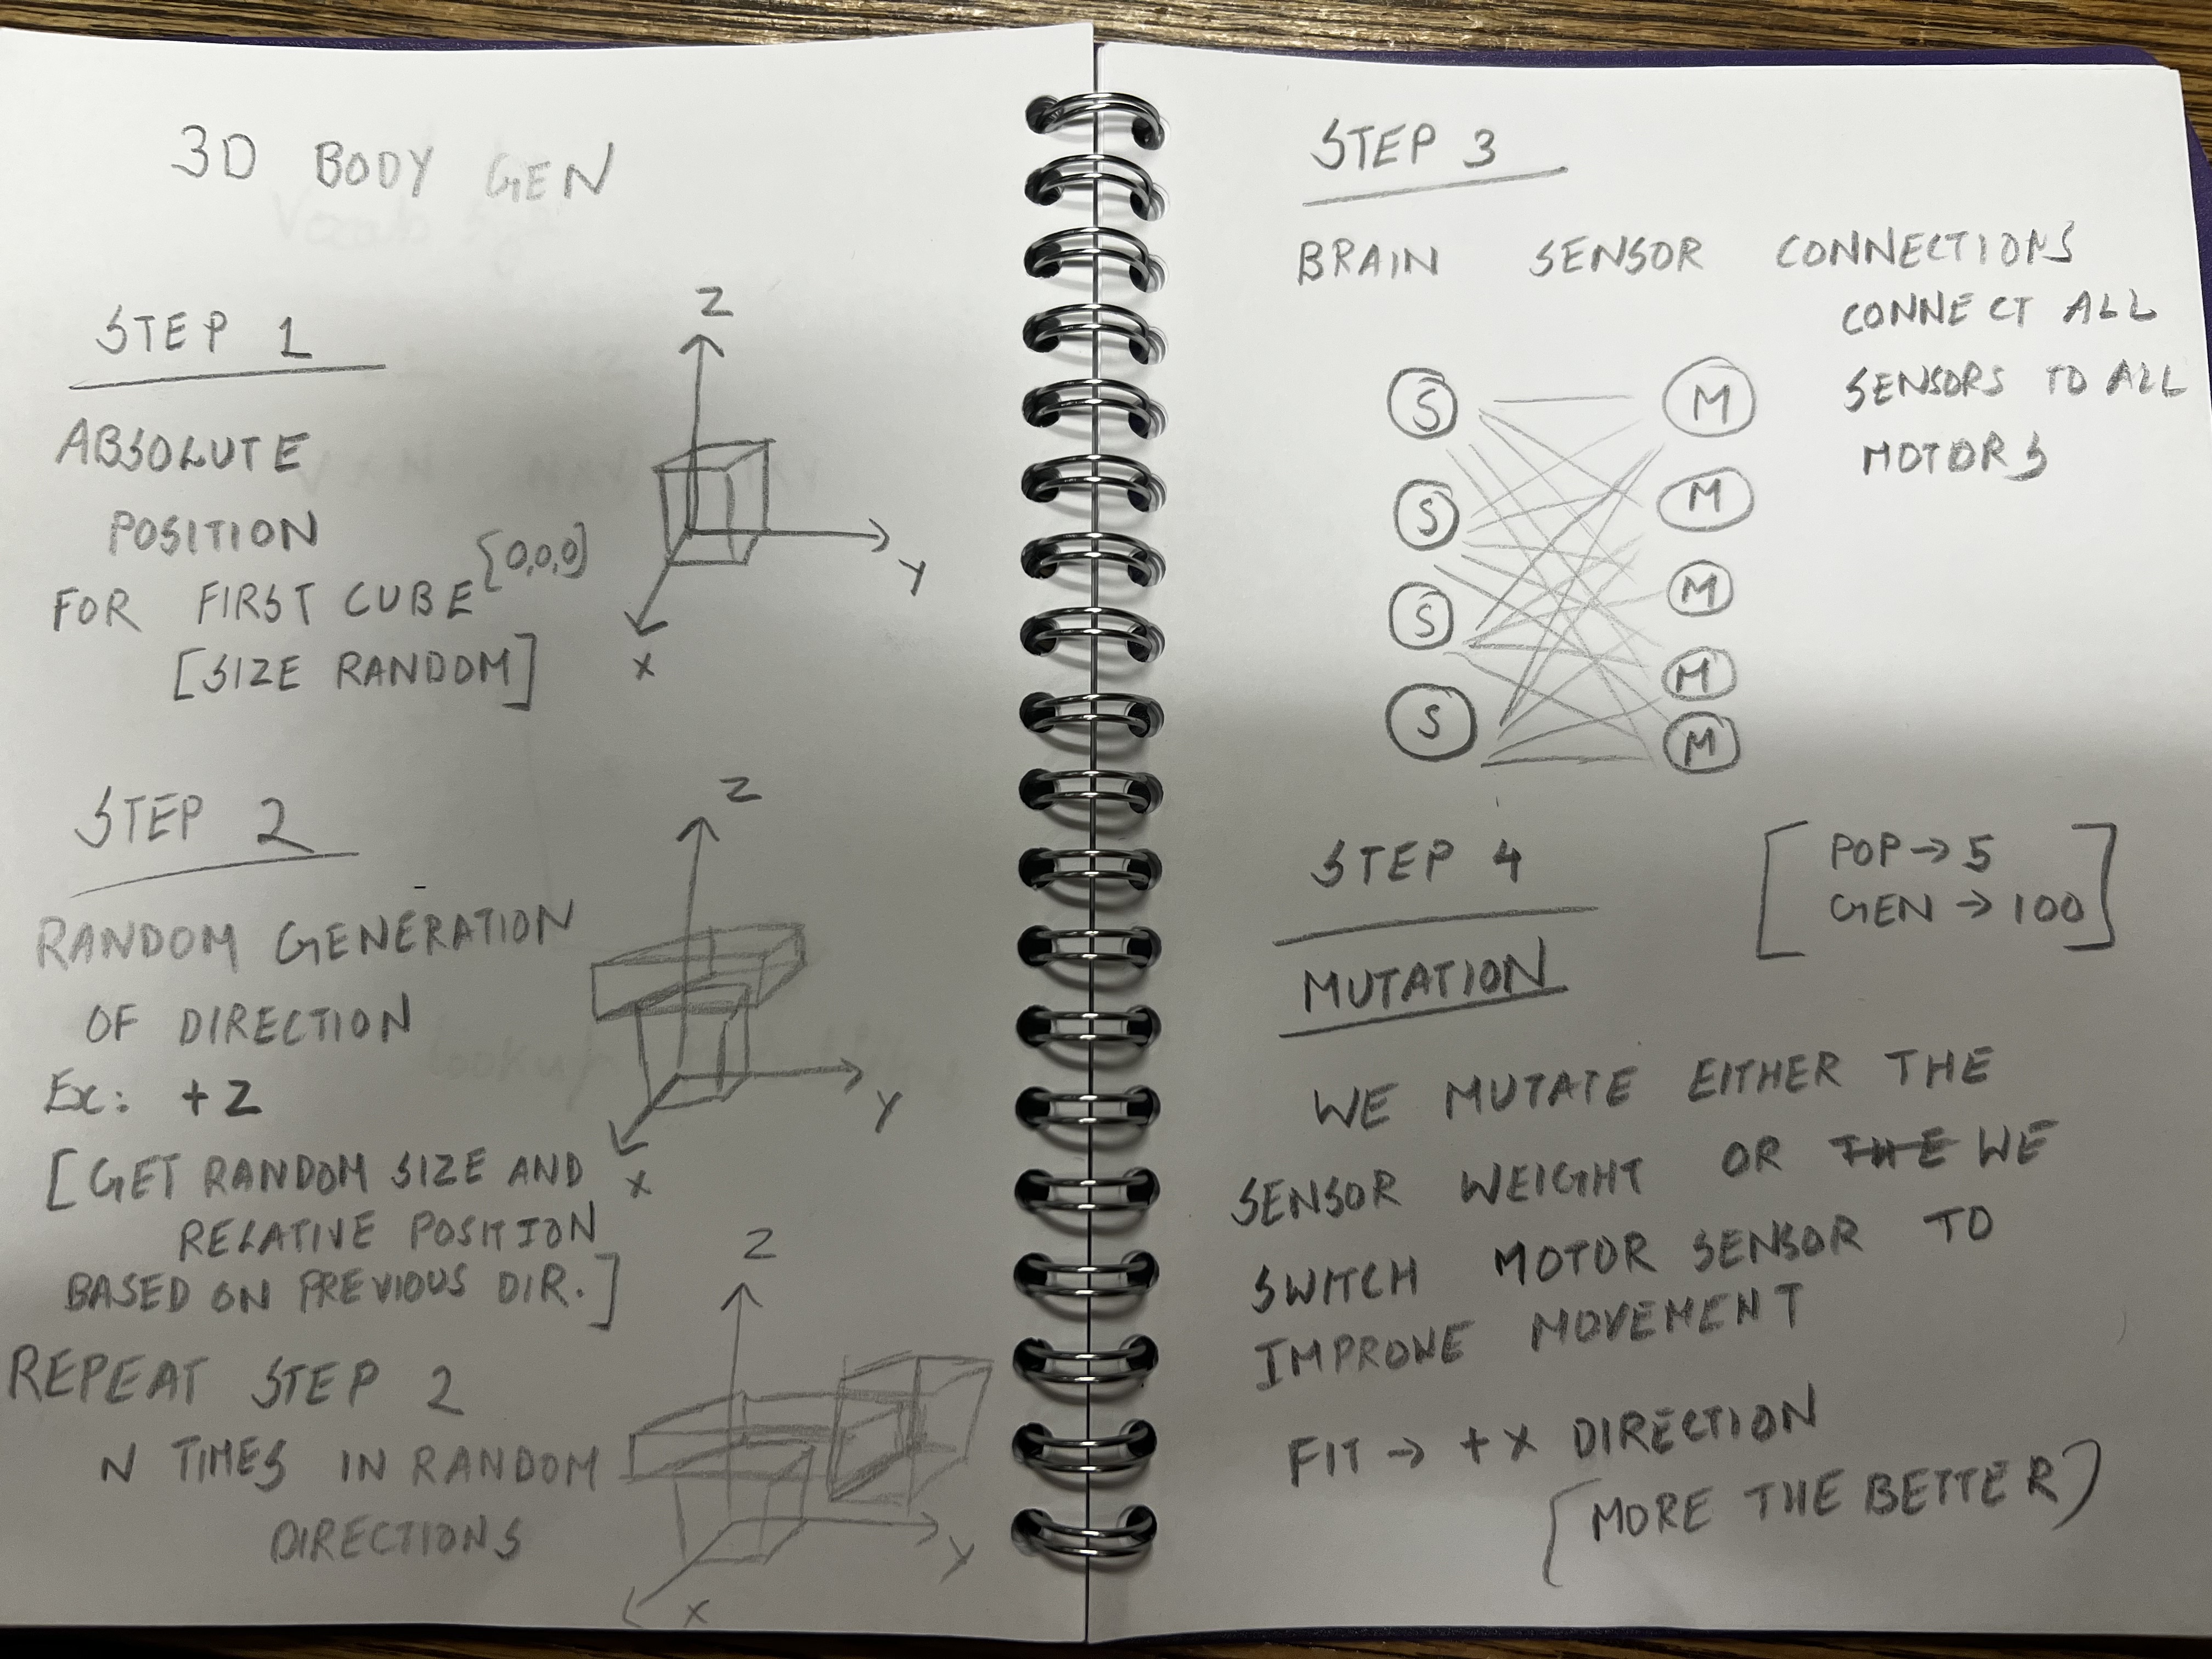 3D BODY GEN
STEP 1
ABSOLUTE
POSITION
FOR FIRST CUBE [0,0,0]
[SIZE RANDOM]
Z
Y
X
STEP 2
RANDOM GENERATION
OF DIRECTION
Ex: +Z
[GET RANDOM SIZE AND
RELATIVE POSITION
BASED ON PREVIOUS DIR.]
Z
Y
X
REPEAT STEP 2
N TIMES IN RANDOM
DIRECTIONS
Z
Y
X
STEP 3
BRAIN SENSOR CONNECTIONS
CONNECT ALL
SENSORS TO ALL
MOTORS
S M
S M
S M
M
S M
STEP 4
[POP → 5
GEN → 100]
MUTATION
WE MUTATE EITHER THE
SENSOR WEIGHT OR THE WE
SWITCH MOTOR SENSOR TO
IMPROVE MOVEMENT
FIT → +X DIRECTION
(MORE THE BETTER)